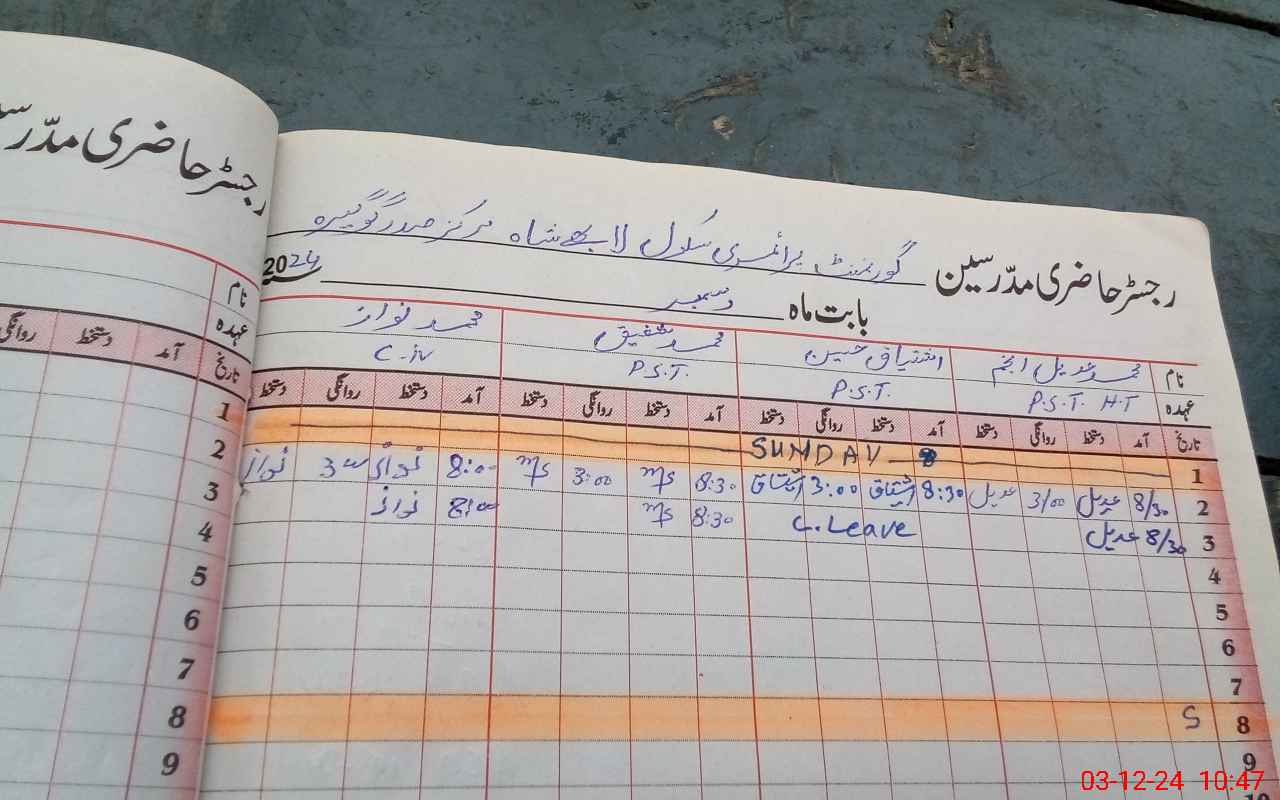 رجسٹر حاضری مدرسین
نام
عہدہ
تاریخ آمد دستخط روانگی
1
2
3
4
5
6
7
8
9
رجسٹر حاضری مدّرسین گورنمنٹ پرائمری سکول لابھے شاہ مرکز صدر گوگیرہ
بابت ماہ دسمبر 2024
نام محمد عدیل انجم اشتیاق حسین محمد شفیق محمد نواز
عہدہ P.S.T. H.T P.S.T. P.S.T. C-iv
تاریخ آمد دستخط روانگی دستخط آمد دستخط روانگی دستخط آمد دستخط روانگی دستخط آمد دستخط روانگی دستخط
1 SUNDAY
2 8/30 عدیل 3/00 عدیل 8:30 اشتیاق 3:00 اشتیاق 8:30 ms 3:00 ms 8:00 نواز 3 نواز
3 8/30 عدیل C.Leave 8:30 ms 8:00 نواز
4
5
6
7
8 S
9
10
03-12-24 10:47